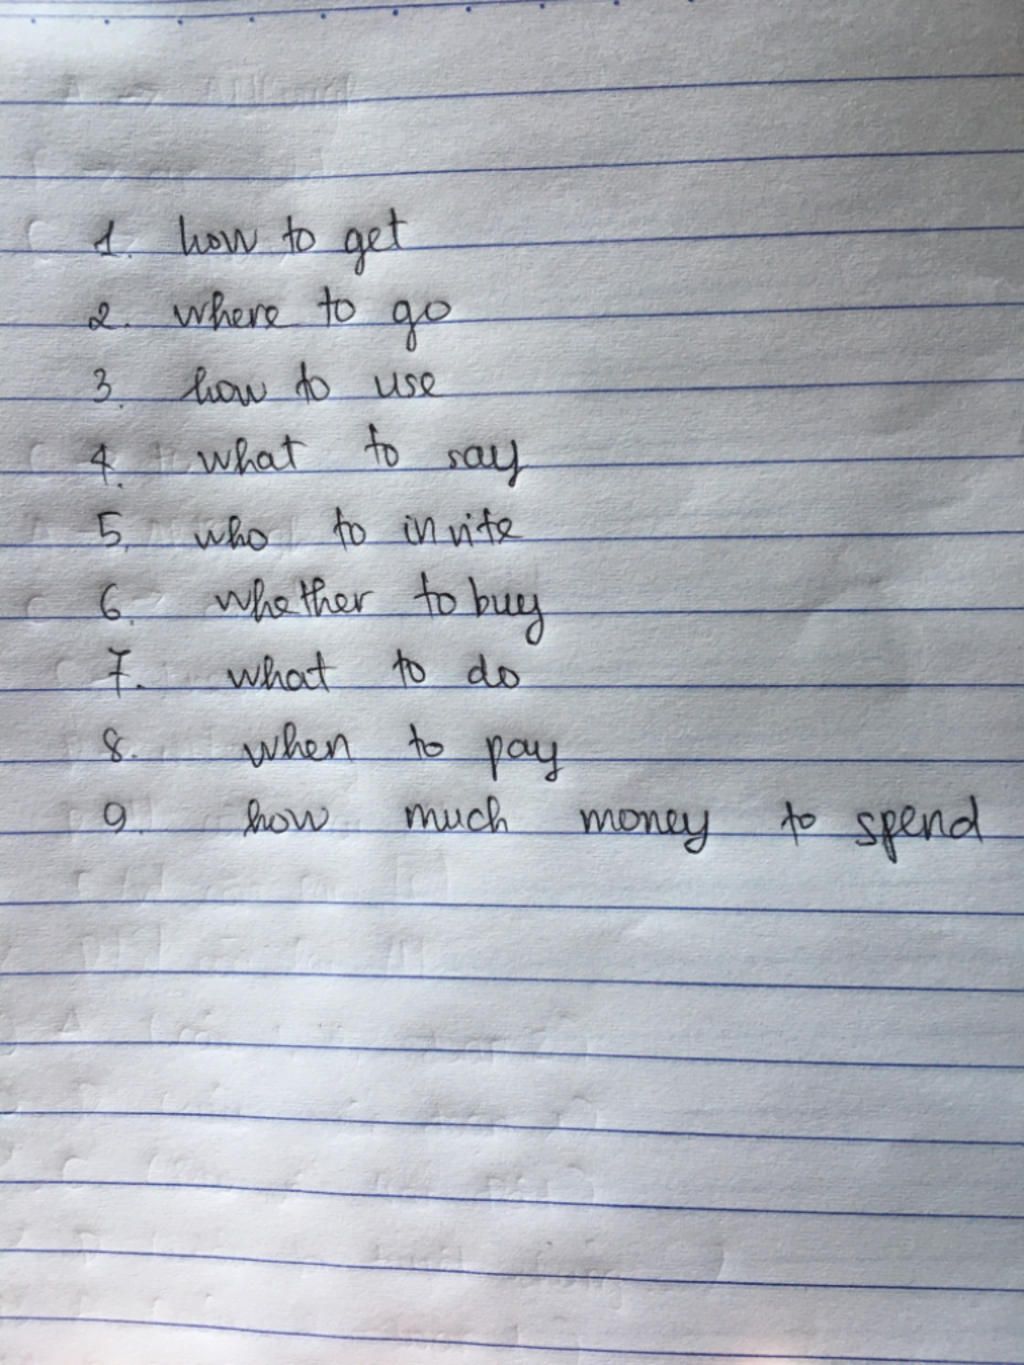 1. how to get
2. where to go
3. how to use
4. what to say
5. who to invite
6. whether to buy
7. what to do
8. when to pay
9. how much money to spend